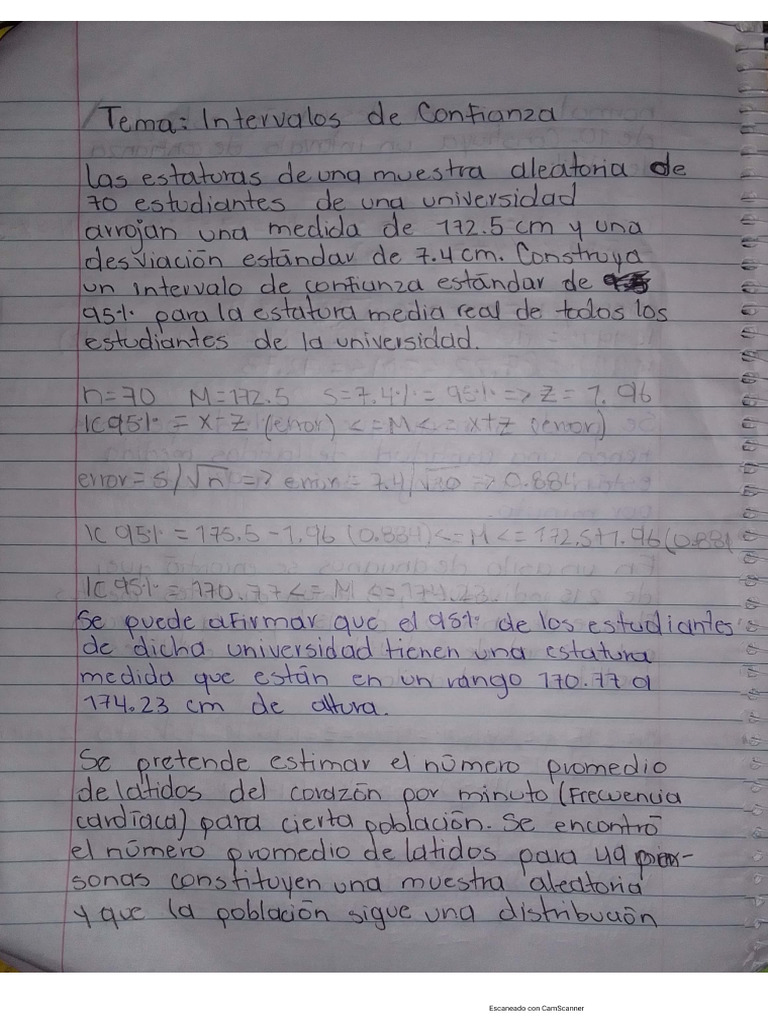 Tema: Intervalos de Confianza
Las estaturas de una muestra aleatoria de
70 estudiantes de una universidad
arrojan una medida de 172.5 cm y una
desviación estándar de 7.4 cm. Construya
un intervalo de confianza estándar de
95% para la estatura media real de todos los
estudiantes de la universidad.
n=70 M=172.5 S=7.4% = 95% => Z = 1.96
IC95% = x+Z (error) <=M<= x+z (error)
error = s/√n => error = 7.4/√70 => 0.884
IC 95% = 175.5 - 1.96 (0.884) <= M <= 172.5+1.96(0.884
IC 95% = 170.77 <= M <= 174.23.
Se puede afirmar que el 95% de los estudiantes
de dicha universidad tienen una estatura
medida que están en un rango 170.77 a
174.23 cm de altura.
Se pretende estimar el número promedio
de latidos del corazón por minuto (Frecuencia
cardíaca) para cierta población. Se encontró
el número promedio de latidos para 49 per-
sonas constituyen una muestra aleatoria
y que la población sigue una distribución
Escaneado con CamScanner